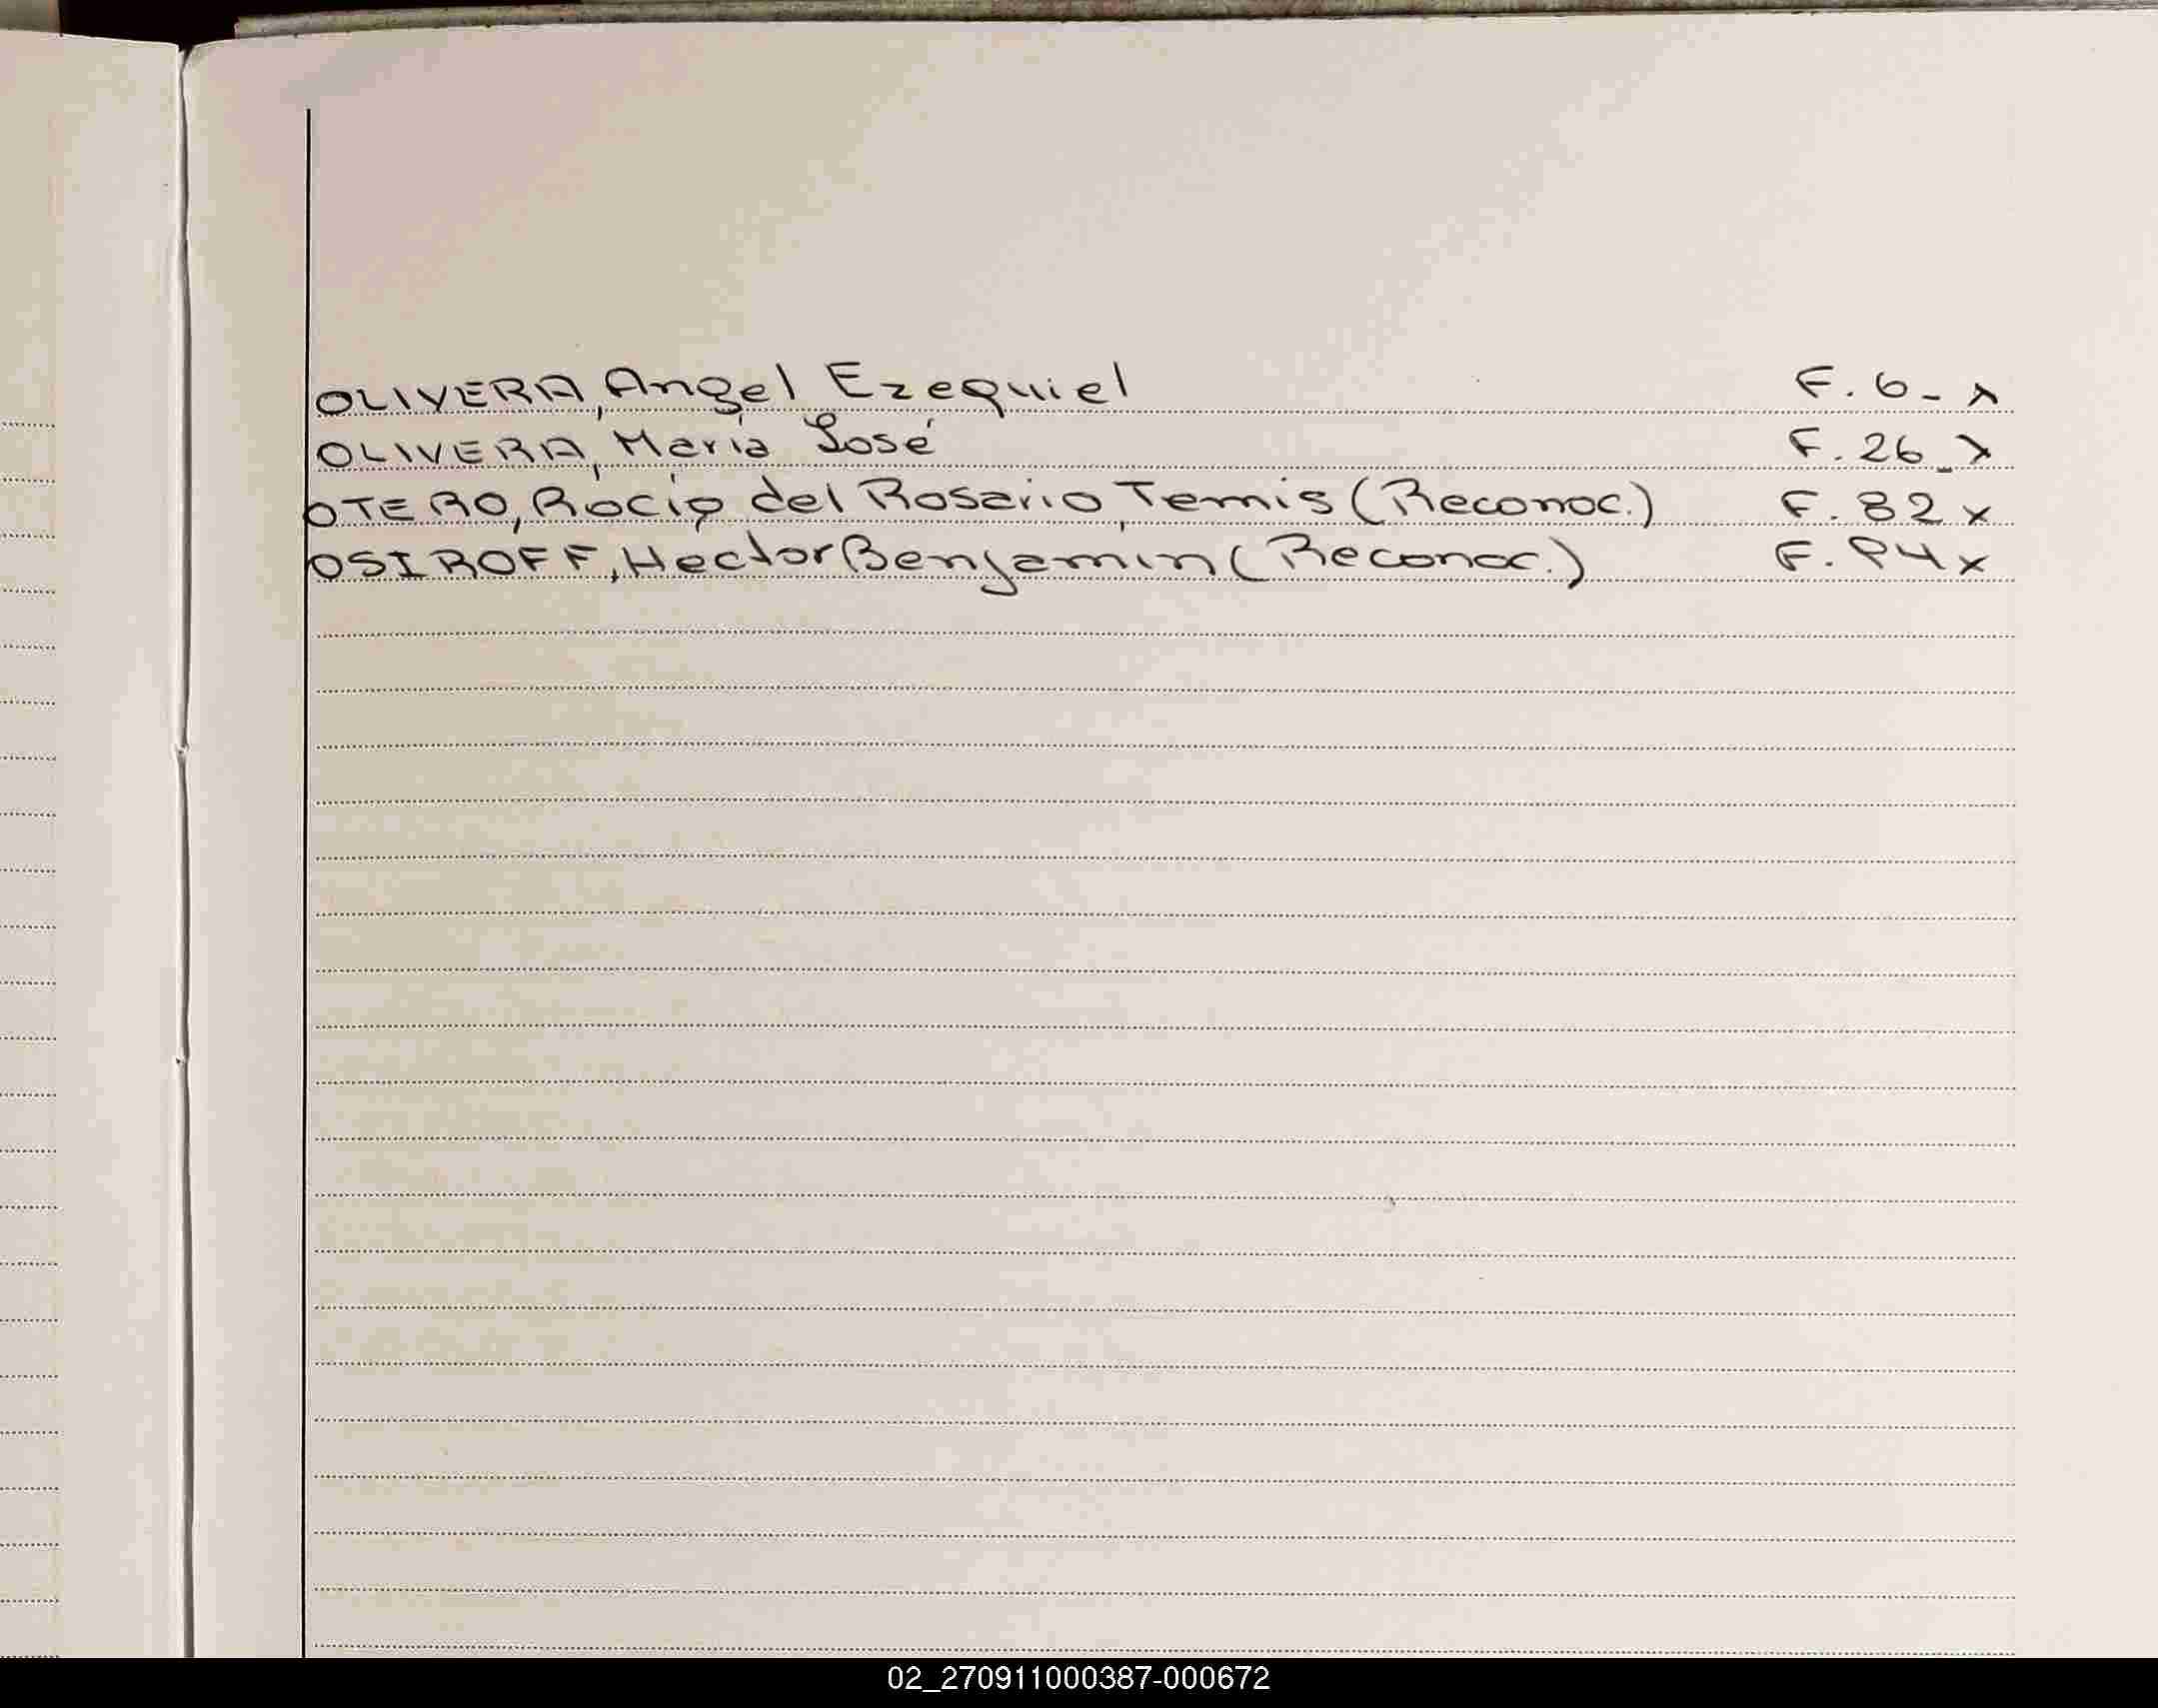 OLIVERA, Angel Ezequiel F. 6_ x
OLIVERA, María José F. 26_ x
OTERO, Rocío del Rosario Temis (Reconoc.) F. 82 x
OSIROFF, Hector Benjamin (Reconoc.) F. 94 x
02_270911000387-000672